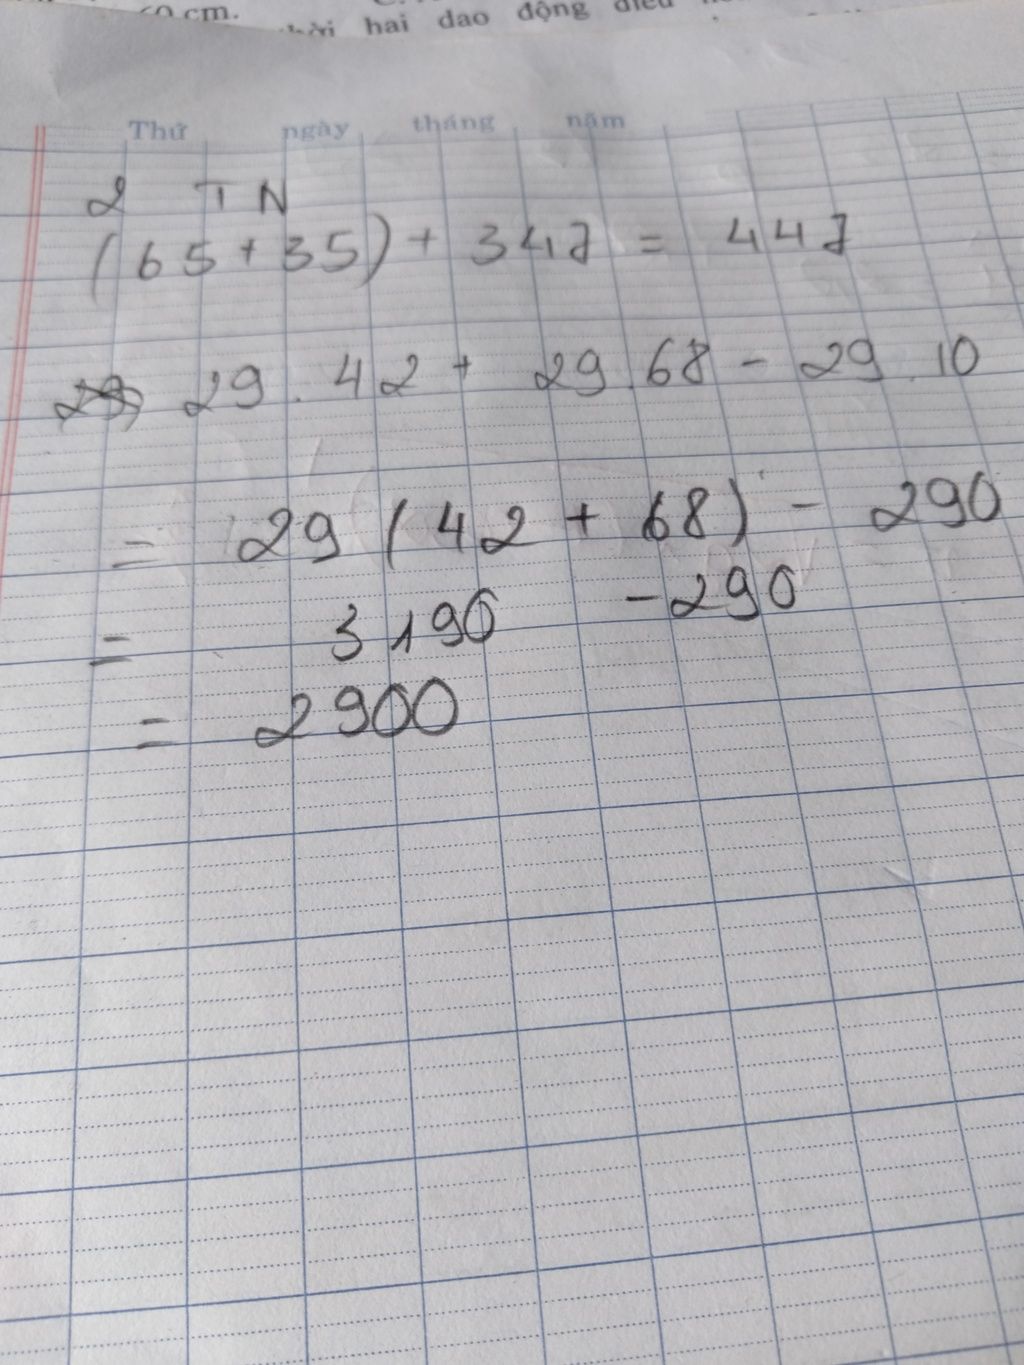 60 cm.
hai dao động điều
Thứ ngày tháng năm
2 TN
(65+35) + 347 = 447
29 . 42 + 29 . 68 - 29 . 10
= 29 (42 + 68) - 290
= 3190 - 290
= 2900